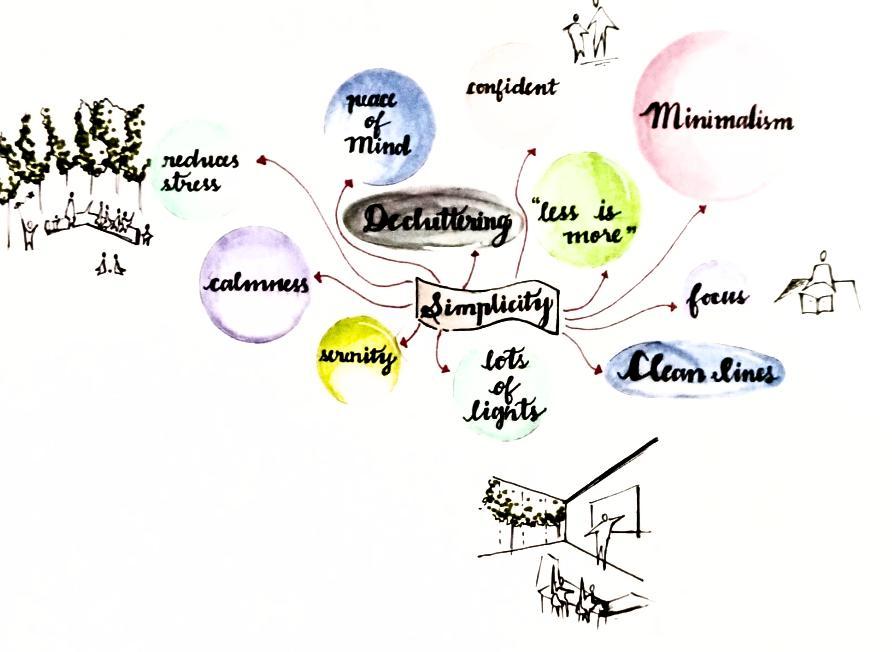 confident
peace
of
Mind
Minimalism
reduces
stress
Decluttering
"less is
more"
calmness
Simplicity
focus
serenity
lots
of
lights
Clean lines